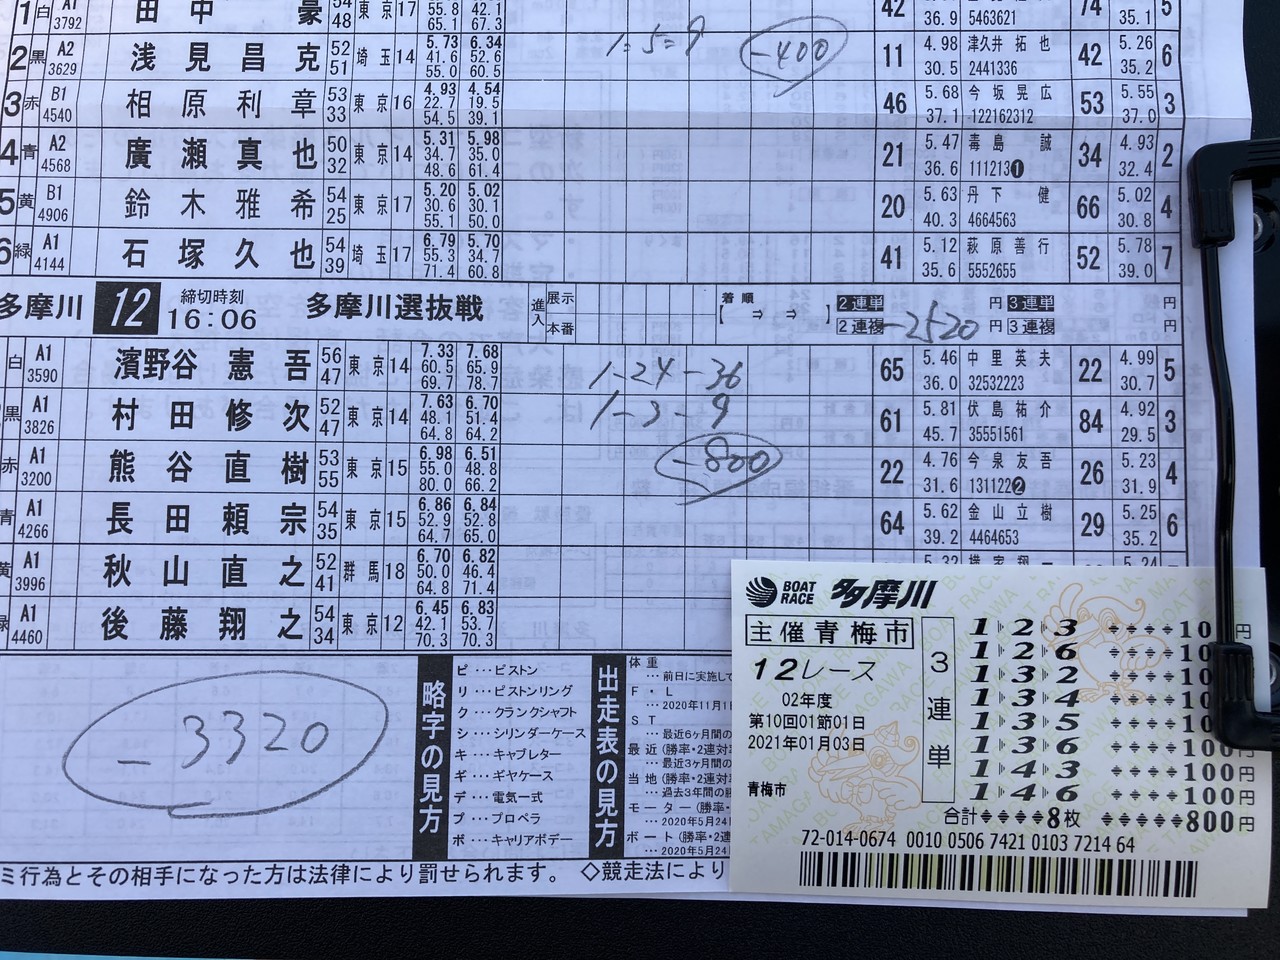 1 白 A1 3792 田中 豪 54 48 東京 17 55.8 65.1 45.0 67.3 42 36.9 5463621 74 35.1 5
2 黒 A2 3629 浅見昌克 52 51 埼玉 14 5.73 41.6 55.0 6.34 52.6 60.5 1=5=9 -400 11 4.98 30.5 津久井拓也 2441336 42 5.26 35.2 6
3 赤 B1 4540 相原利章 53 33 東京 16 4.93 22.7 54.5 4.54 19.5 39.1 46 5.68 37.1 今坂晃広 -122162312 53 5.55 37.0 3
4 青 A2 4568 廣瀬真也 50 32 東京 14 5.31 34.7 48.6 5.98 35.0 61.4 21 5.47 36.6 毒島誠 111213❶ 34 4.93 32.4 2
5 黄 B1 4906 鈴木雅希 54 25 東京 17 5.20 30.6 55.1 5.02 30.1 50.0 20 5.63 40.3 丹下健 4664563 66 5.02 30.8 4
6 緑 A1 4144 石塚久也 54 39 埼玉 17 6.79 55.3 71.4 5.70 34.7 60.8 41 5.12 35.6 萩原善行 5552655 52 5.78 39.0 7
多摩川 12 締切時刻 16:06 多摩川選抜戦 進入 展示 本番 着順 【 ⇒ ⇒ 】 2連単 円 3連単 円
2連複 -2520 円 3連複 円
白 A1 3590 濱野谷憲吾 56 47 東京 14 7.33 60.5 69.7 7.68 65.9 78.7 1-24-36 65 5.46 36.0 中里英夫 32532223 22 4.99 30.7 5
黒 A1 3826 村田修次 52 47 東京 14 7.63 48.1 64.8 6.70 51.4 64.2 1-3-9 61 5.81 45.7 伏島祐介 35551561 84 4.92 29.5 3
赤 A1 3200 熊谷直樹 53 55 東京 15 6.98 55.0 80.0 6.51 48.8 66.2 -800 22 4.76 31.6 今泉友吾 131122❷ 26 5.23 31.9 4
青 A1 4266 長田頼宗 54 35 東京 15 6.86 52.9 64.7 6.84 52.8 65.0 64 5.62 39.2 金山立樹 4464653 29 5.25 35.2 6
黄 A1 3996 秋山直之 52 41 群馬 18 6.70 50.0 64.8 6.82 46.4 71.4
緑 A1 4460 後藤翔之 54 34 東京 12 6.45 42.1 70.3 6.83 53.7 70.3
-3320
略字の見方
ピ…ピストン
リ…ピストンリング
ク…クランクシャフト
シ…シリンダーケース
キ…キャブレター
ギ…ギヤケース
デ…電気一式
プ…プロペラ
ボ…キャリアボデー
出走表の見方
体重
…前日に実施して
F・L
…2020年11月1
ST
…最近6ヶ月間の
最近(勝率・2連対
…最近3ヶ月間の
当地(勝率・2連対
…過去3年間の
モーター(勝率・
…2020年5月24
ボート(勝率・2連
…2020年5月24
ミ行為とその相手になった方は法律により罰せられます。 ◇競走法により
BOAT RACE 多摩川
主催青梅市
12レース
02年度
第10回01節01日
2021年01月03日
青梅市
3連単
1 2 3 10 円
1 2 6 10 円
1 3 2 10
1 3 4 10
1 3 5 10
1 3 6 100
1 4 3 100円
1 4 6 100円
合計 8枚 800円
72-014-0674 0010 0506 7421 0103 7214 64